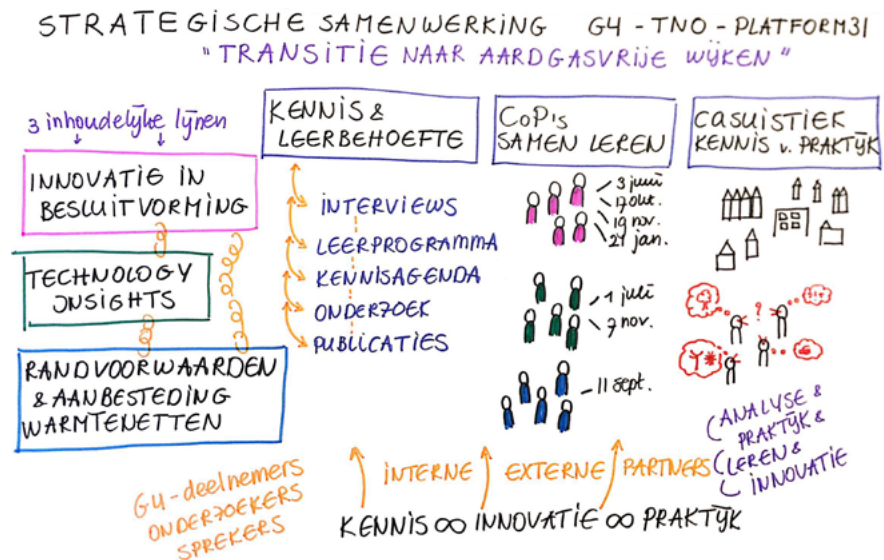 STRATEGISCHE SAMENWERKING G4 - TNO - PLATFORM31
"TRANSITIE NAAR AARDGASVRIJE WIJKEN"
3 inhoudelijke lijnen
INNOVATIE IN
BESLUITVORMING
TECHNOLOGY
INSIGHTS
RANDVOORWAARDEN
& AANBESTEDING
WARMTENETTEN
KENNIS &
LEERBEHOEFTE
INTERVIEWS
LEERPROGRAMMA
KENNISAGENDA
ONDERZOEK
PUBLICATIES
CoP's
SAMEN LEREN
3 juni
17 okt.
19 nov.
21 jan.
1 juli
7 nov.
11 sept.
CASUISTIEK
KENNIS v. PRAKTIJK
?
ANALYSE &
PRAKTIJK &
LEREN &
INNOVATIE
G4-deelnemers
ONDERZOEKERS
SPREKERS
INTERNE EXTERNE PARTNERS
KENNIS ∞ INNOVATIE ∞ PRAKTIJK